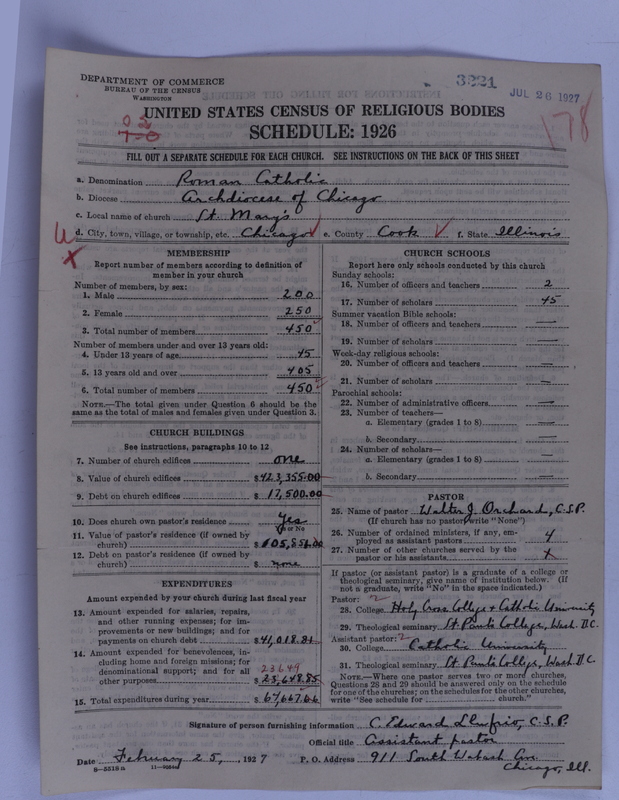 DEPARTMENT OF COMMERCE
BUREAU OF THE CENSUS
WASHINGTON
3221
JUL 26 1927
178
UNITED STATES CENSUS OF RELIGIOUS BODIES
0 2
7-0
SCHEDULE: 1926
FILL OUT A SEPARATE SCHEDULE FOR EACH CHURCH. SEE INSTRUCTIONS ON THE BACK OF THIS SHEET
a. Denomination Roman Catholic
b. Diocese Archdiocese of Chicago
c. Local name of church St. Mary's
d. City, town, village, or township, etc. Chicago e. County Cook f. State Illinois
MEMBERSHIP
Report number of members according to definition of member in your church
Number of members, by sex:
1. Male 200
2. Female 250
3. Total number of members 450
Number of members under and over 13 years old:
4. Under 13 years of age 45
5. 13 years old and over 405
6. Total number of members 450
NOTE.—The total given under Question 6 should be the same as the total of males and females given under Question 3.
CHURCH BUILDINGS
See instructions, paragraphs 10 to 12
7. Number of church edifices one
8. Value of church edifices $423,355.00
9. Debt on church edifices $17,500.00
10. Does church own pastor's residence Yes
Yes or No
11. Value of pastor's residence (if owned by church) $
12. Debt on pastor's residence (if owned by church) $ none
EXPENDITURES
Amount expended by your church during last fiscal year
13. Amount expended for salaries, repairs, and other running expenses; for improvements or new buildings; and for payments on church debt $41,018.81
14. Amount expended for benevolences, including home and foreign missions; for denominational support; and for all other purposes 23649 $23,648.85
15. Total expenditures during year $64,667.66
CHURCH SCHOOLS
Report here only schools conducted by this church
Sunday schools:
16. Number of officers and teachers 2
17. Number of scholars 45
Summer vacation Bible schools:
18. Number of officers and teachers —
19. Number of scholars —
Week-day religious schools:
20. Number of officers and teachers —
21. Number of scholars —
Parochial schools:
22. Number of administrative officers —
23. Number of teachers—
a. Elementary (grades 1 to 8) —
b. Secondary —
24. Number of scholars—
a. Elementary (grades 1 to 8) —
b. Secondary —
PASTOR
25. Name of pastor Walter J. Orchard, C.S.P.
(If church has no pastor, write "None")
26. Number of ordained ministers, if any, employed as assistant pastors 4
27. Number of other churches served by the pastor or his assistants x
If pastor (or assistant pastor) is a graduate of a college or theological seminary, give name of institution below. (If not a graduate, write "No" in the space indicated.)
Pastor: 2
28. College Holy Cross College & Catholic University
29. Theological seminary St Pauls College, Wash. D.C.
Assistant pastor: 2
30. College Catholic University
31. Theological seminary St. Pauls College, Wash D.C.
NOTE.—Where one pastor serves two or more churches, Questions 28 and 29 should be answered only on the schedule for one of the churches; on the schedules for the other churches, write "See schedule for church."
Signature of person furnishing information C. Edward C.S.P.
Official title Assistant pastor
Date February 25, 1927 P. O. Address 911 South Wabash Ave
8—5519 a Chicago, Ill.